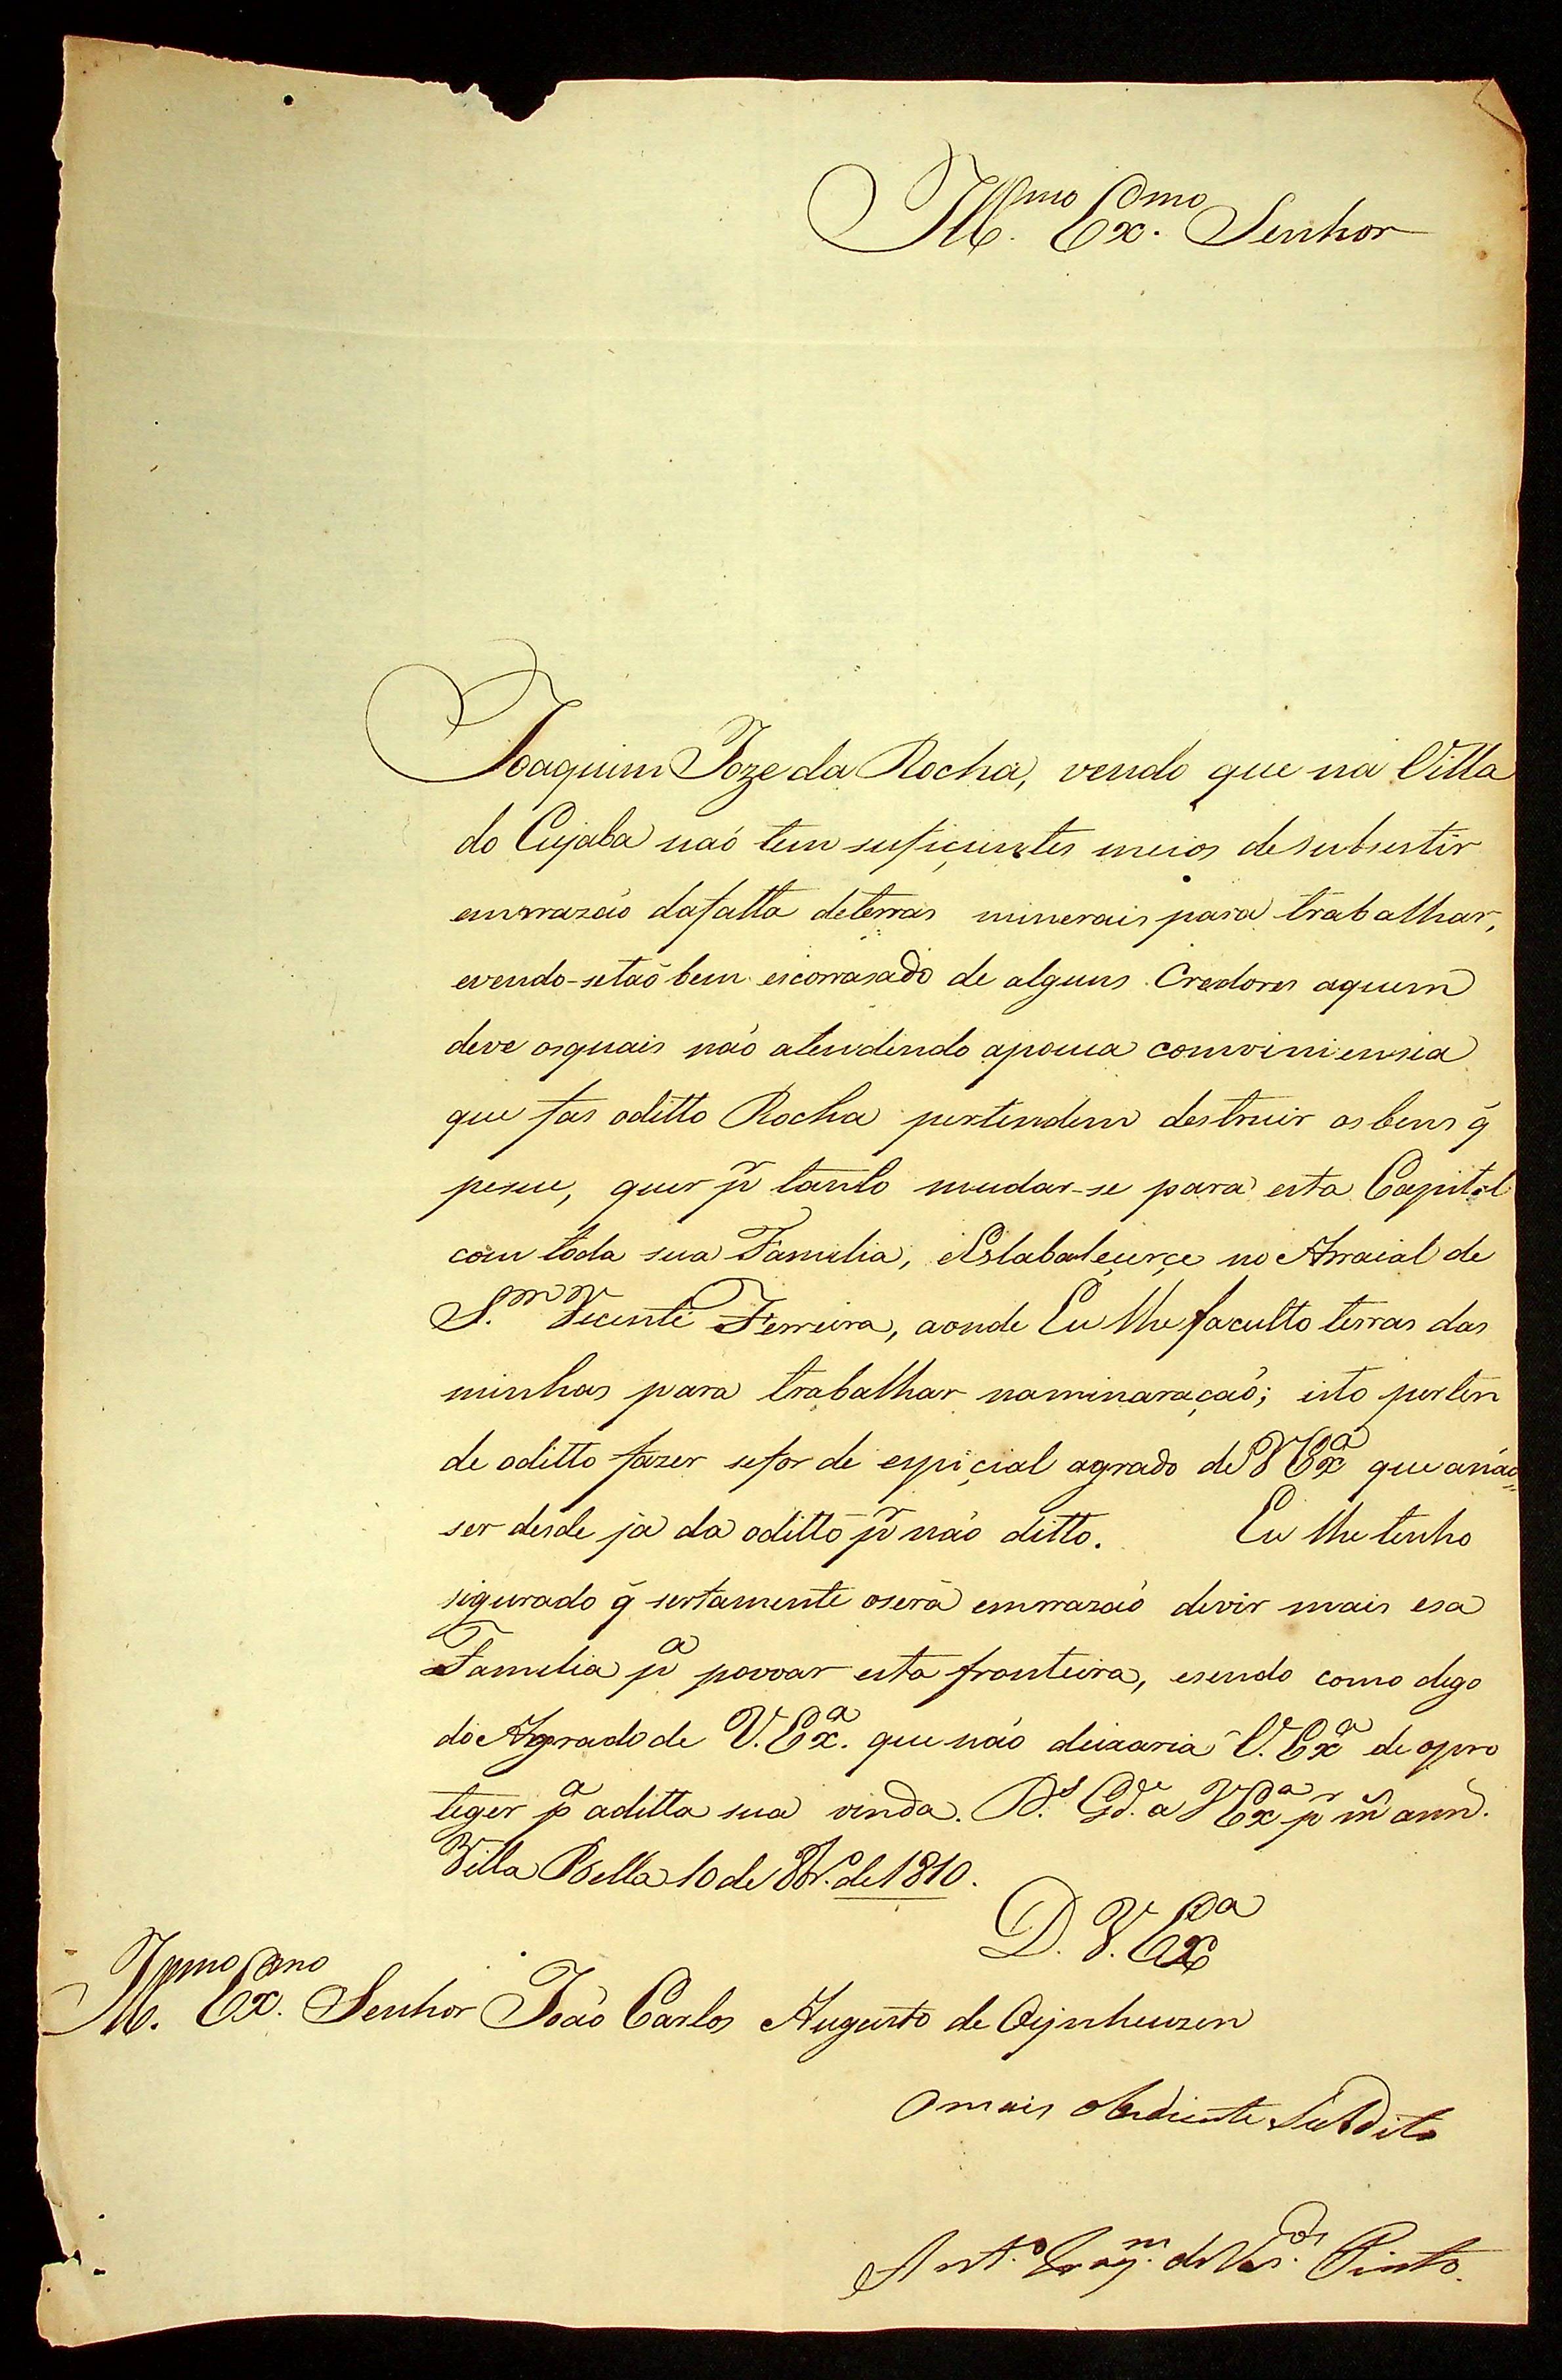 Ill.mo Ex.mo Senhor
Joaquim Joze da Rocha, vendo que na Villa
do Cujaba naó tem sufiçientes meios desubsestir
emrrazáo dafalta deterras minerais para trabalhar,
evendo-setaõ bem escorrasado de alguns Credores aquem
deve osquais náo atendendo apouca comviniensia
que fas oditto Rocha pertendem destruir osbens q̃
pesue, quer p.r tanto mudar-se para esta Capital
com toda sua Familia, eEstabaleçerçe no Arraial de
S.m Vicente Ferreira, aonde Eu lhe faculto terras das
minhas para trabalhar naminaraçaó; isto perten
de oditto fazer sefor de espiçial agrado de V Ex.a que anáo
ser desde ja da oditto p.r náo ditto. Eu lhe tenho
sigurado q̃ sertamente oserá emrrazaó devir mais esa
Familia p.a povoar esta fronteira, esendo como digo
do Agrado de V. Ex.a que náo deixaria V. Ex.a de opro
teger p.a aditta sua vinda. D.s G.de a V Ex.a p.r m.s ann.
Villa Bella 10 de 8br.o de 1810.
D. V. Ex.a
Ill.mo Ex.mo Senhor Joáo Carlos Augusto de Oeynheuzen
O mais obediente Subdito
Ant.o Pinto.